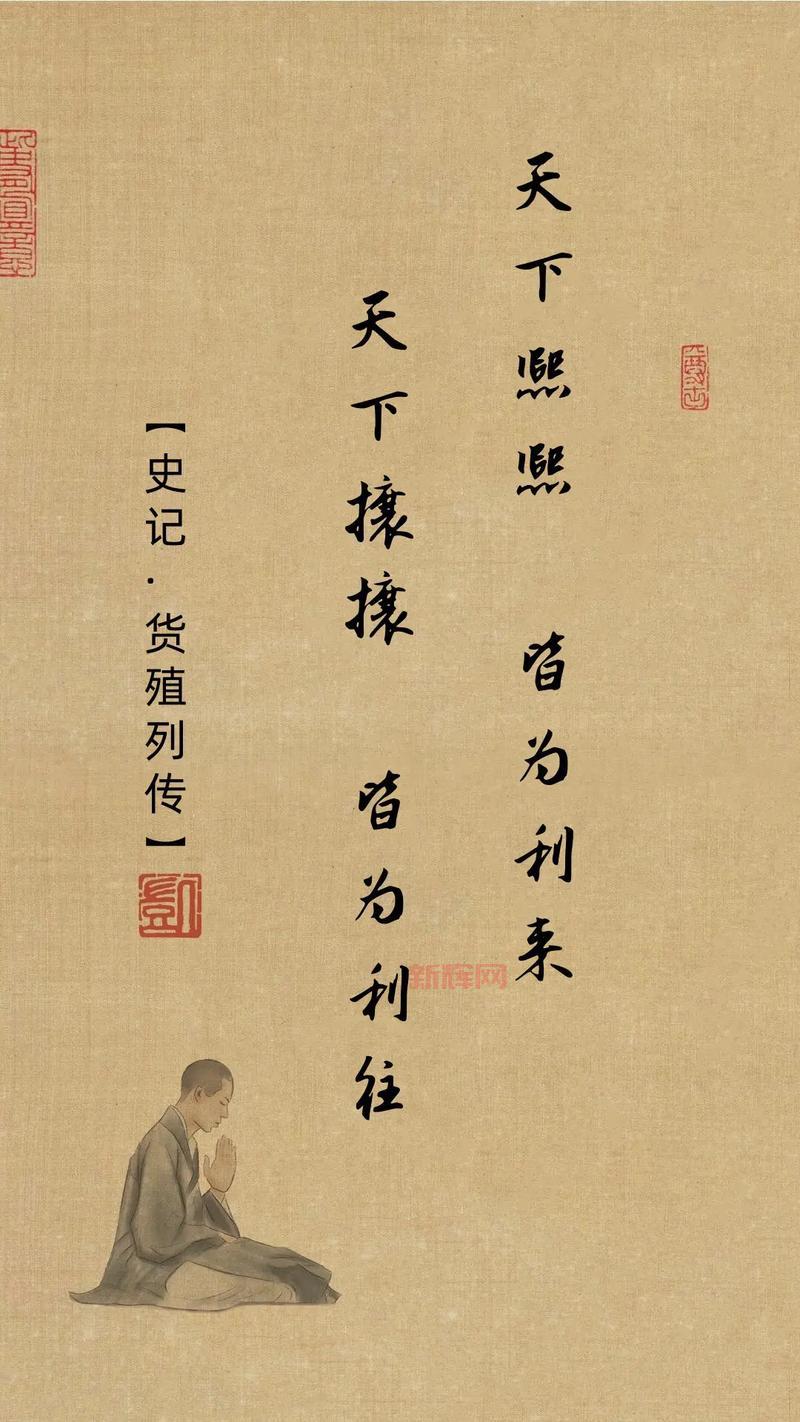 天下熙熙 皆为利来
天下攘攘 皆为利往
【史记·货殖列传】
新辉网